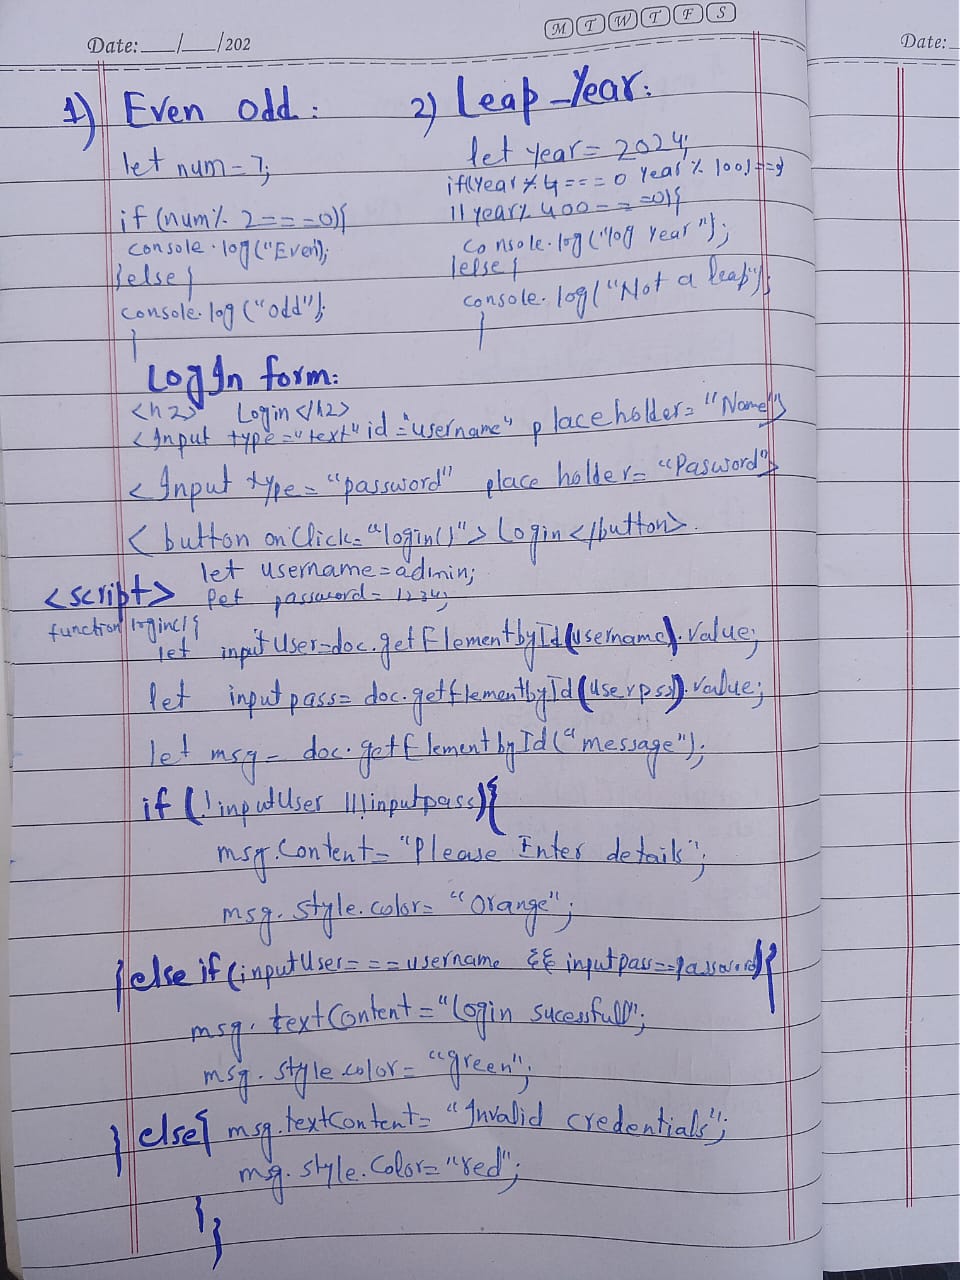 M T W T F S
Date:___/___/202
Date:
1) Even odd:
let num=7;
if (num% 2===0){
console.log("Even);
}else{
console.log ("odd");
}
2) Leap-Year:
let year= 2024;
if((year % 4===0 year % 100)==
|| year% 400===0){
console.log("log year");
}else{
console.log("Not a leap");
}
LogIn form:
<h2> Login</h2>
<Input type="text" id="username" placeholder="Name">
<Input type="password" place holder="Pasword">
<button onClick="login()">Login</button>
let username=admin;
<script> let password=1234;
function login(){
let inputUser=doc.getElementbyId(username).value;
let inputpass= doc.getElementbyId(userpss).value;
let msg= doc.getElementbyId("message");
if (!inputUser ||!inputpass){
msg.Content="Please Enter details";
msg.style.color="Orange";
}else if(inputUser===username && inputpass==password){
msg.textContent="Login sucessfull";
msg.style.color="green";
}else{ msg.textContent="Invalid credentials";
msg.style.Color="red";
}
}